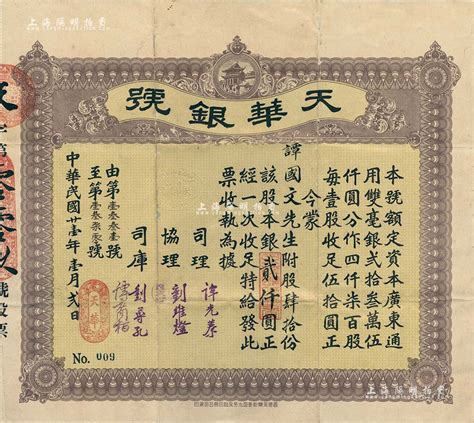 上海陽明拍賣
天華銀號
本號額定資本廣東通
用雙毫銀弍拾叁萬伍
仟圓公作四仟柒百股
每壹股收足伍拾圓正
今蒙
譚國文先生附股肆拾份
該股本銀貳仟圓正
經一次收足特給發此
票收執為據
司理
協理 劉維燈
司庫 劉尊孔
由第壹叁叁壹號
至第壹叁柒零號
中華民國廿壹年壹月弍日
天華
No. 009
號股票
上海陽明拍賣